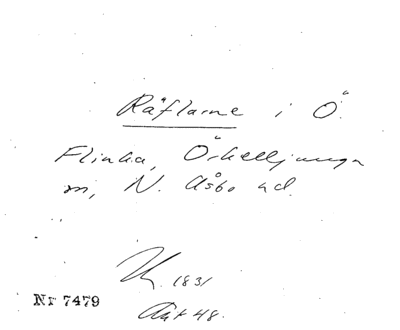 Räflarne i Ö.
Flinka, Örkelljunga
m, N. Åsbo ud.
1831
Nr 7479
Akt 48.